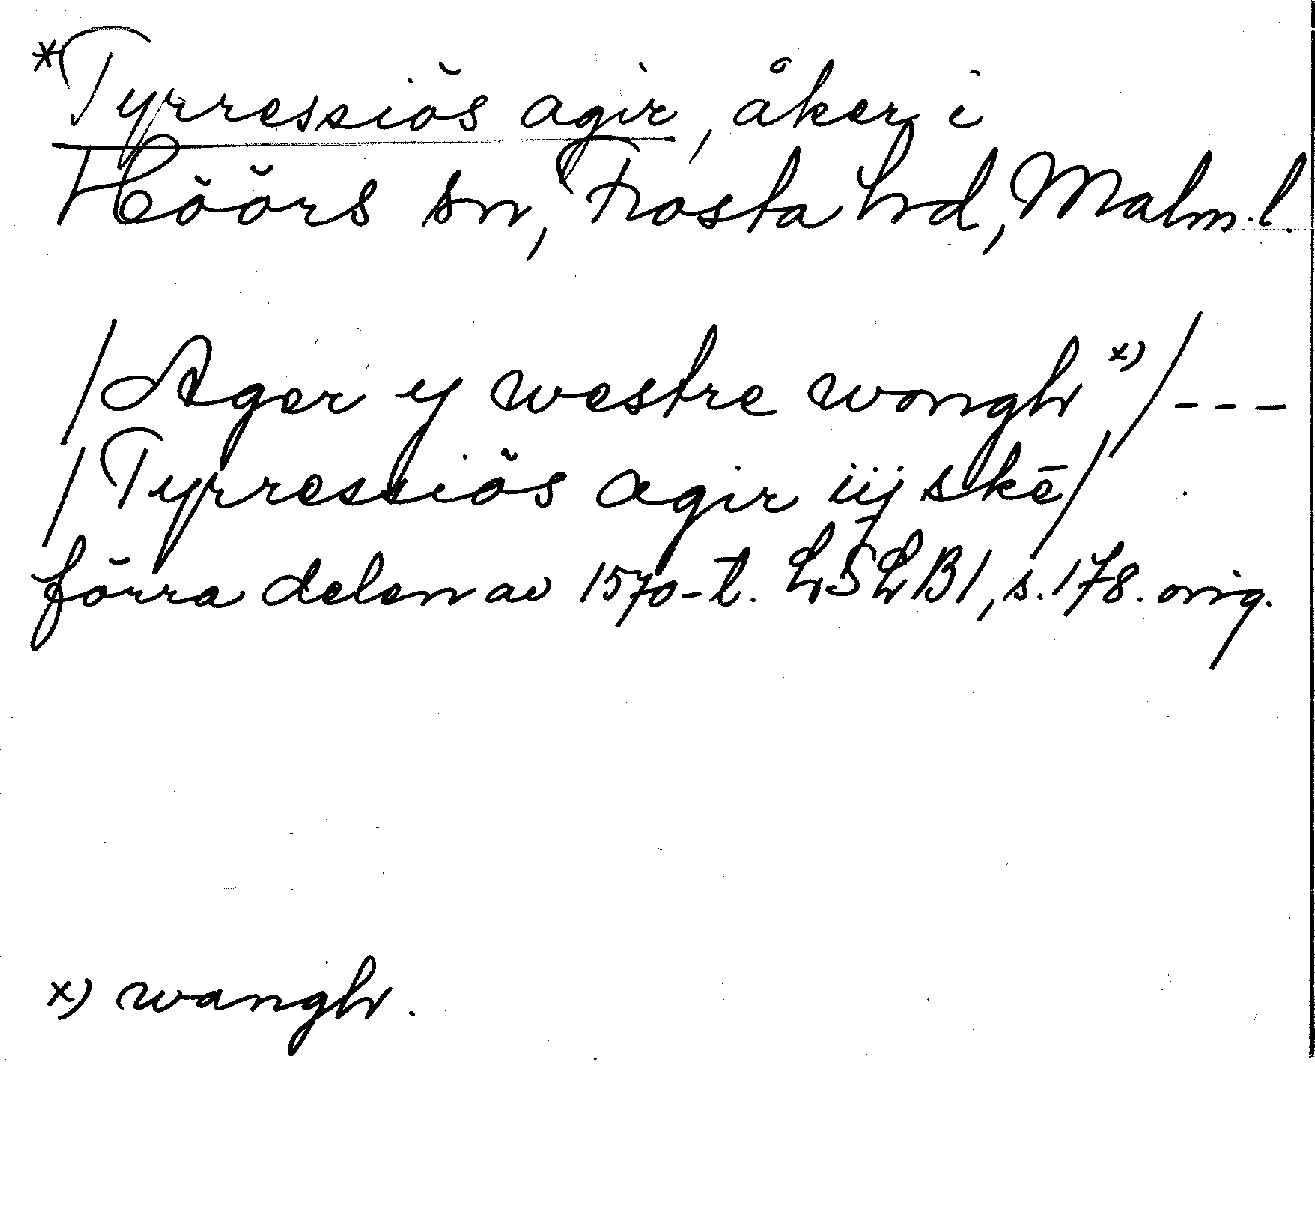 *Tyrressiös agir, åker i
Höörs sn, Frosta hrd, Malm.l.
/Ager y westre wongh x)/---
/Tyrressiös agir iij skē/
förra delen av 1570-t. LSLB1, s.178. orig.
x) wangh.